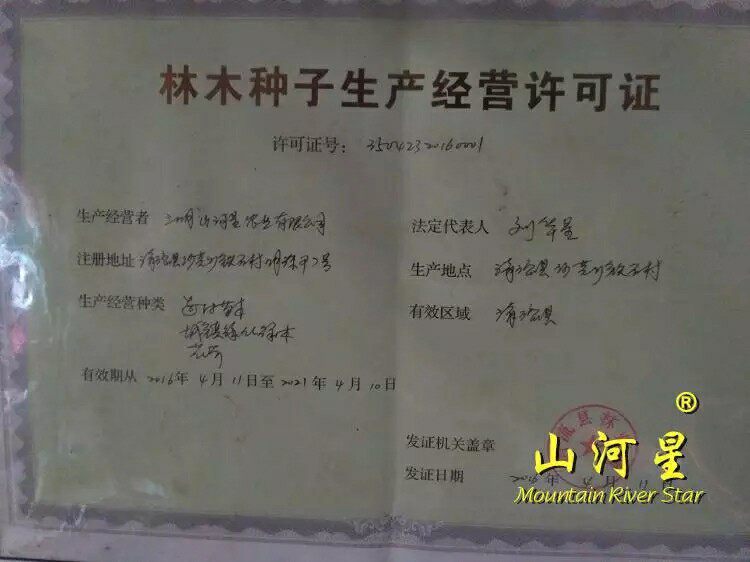 林木种子生产经营许可证
许可证号: 35042320160001
生产经营者 三明山河星农业有限公司
法定代表人 刘华星
注册地址 清流县沙芜乡铁石村
生产地点 清流县沙芜乡铁石村
生产经营种类 苗木
城镇绿化
花卉
有效区域 清流县
有效期从 2016年 4月 11日至 2021年 4月 10日
发证机关盖章
流县
发证日期 2016年 4月 11日
山河星®
Mountain River Star